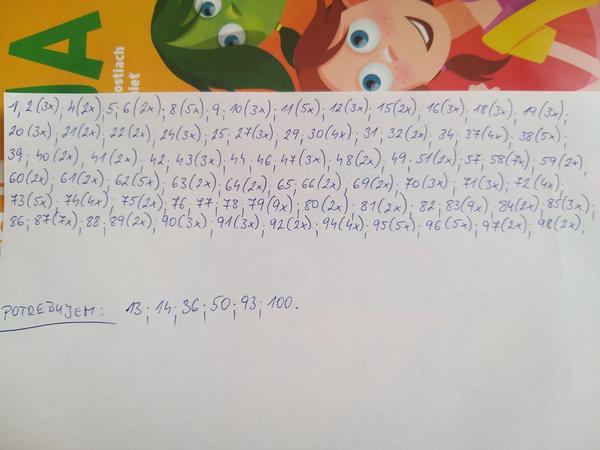 JA
ostiach
ieť
1, 2(3x); 4(2x); 5; 6(2x); 8(5x); 9; 10(3x); 11(5x); 12(3x); 15(2x); 16(3x); 18(3x); 19(3x);
20(3x); 21(2x); 22(2x); 24(3x); 25; 27(3x); 29; 30(4x); 31; 32(2x); 34; 37(4x); 38(5x);
39; 40(2x); 41(2x); 42; 43(3x); 44; 46; 47(3x); 48(2x); 49; 51(2x); 57; 58(7x); 59(2x);
60(2x); 61(2x); 62(5x); 63(2x); 64(2x); 65; 66(2x); 69(2x); 70(3x); 71(3x); 72(4x);
73(5x); 74(4x); 75(2x); 76; 77; 78; 79(9x); 80(2x); 81(2x); 82; 83(9x); 84(2x); 85(3x);
86; 87(7x); 88; 89(2x); 90(3x); 91(3x); 92(2x); 94(4x); 95(5x); 96(5x); 97(2x); 98(2x);
POTREBUJEM: 13; 14; 36; 50; 93; 100.